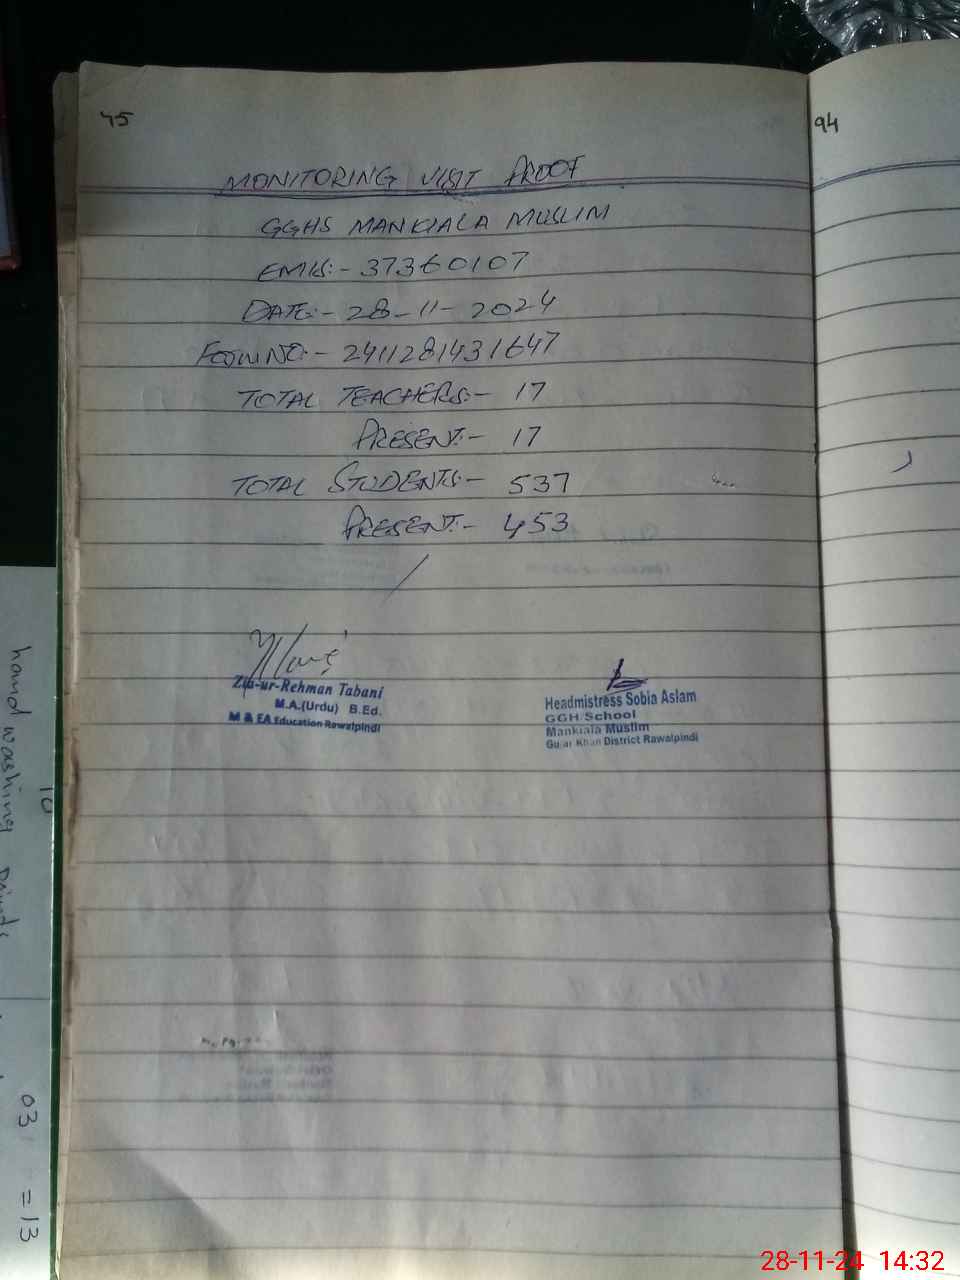 45
94
MONITORING VISIT PROOF
GGHS MANKIALA MUSLIM
EMIS:- 37360107
DATE:- 28-11-2024
FORM NO:- 2411281431647
TOTAL TEACHERS:- 17
PRESENT:- 17
TOTAL STUDENTS:- 537
PRESENT:- 453
Zia-ur-Rehman Tabani
M.A.(Urdu) B.Ed.
M & EA Education Rawalpindi
Headmistress Sobia Aslam
GGH School
Mankiala Muslim
Gujar Khan District Rawalpindi
hand washing
10
03
=13
28-11-24 14:32